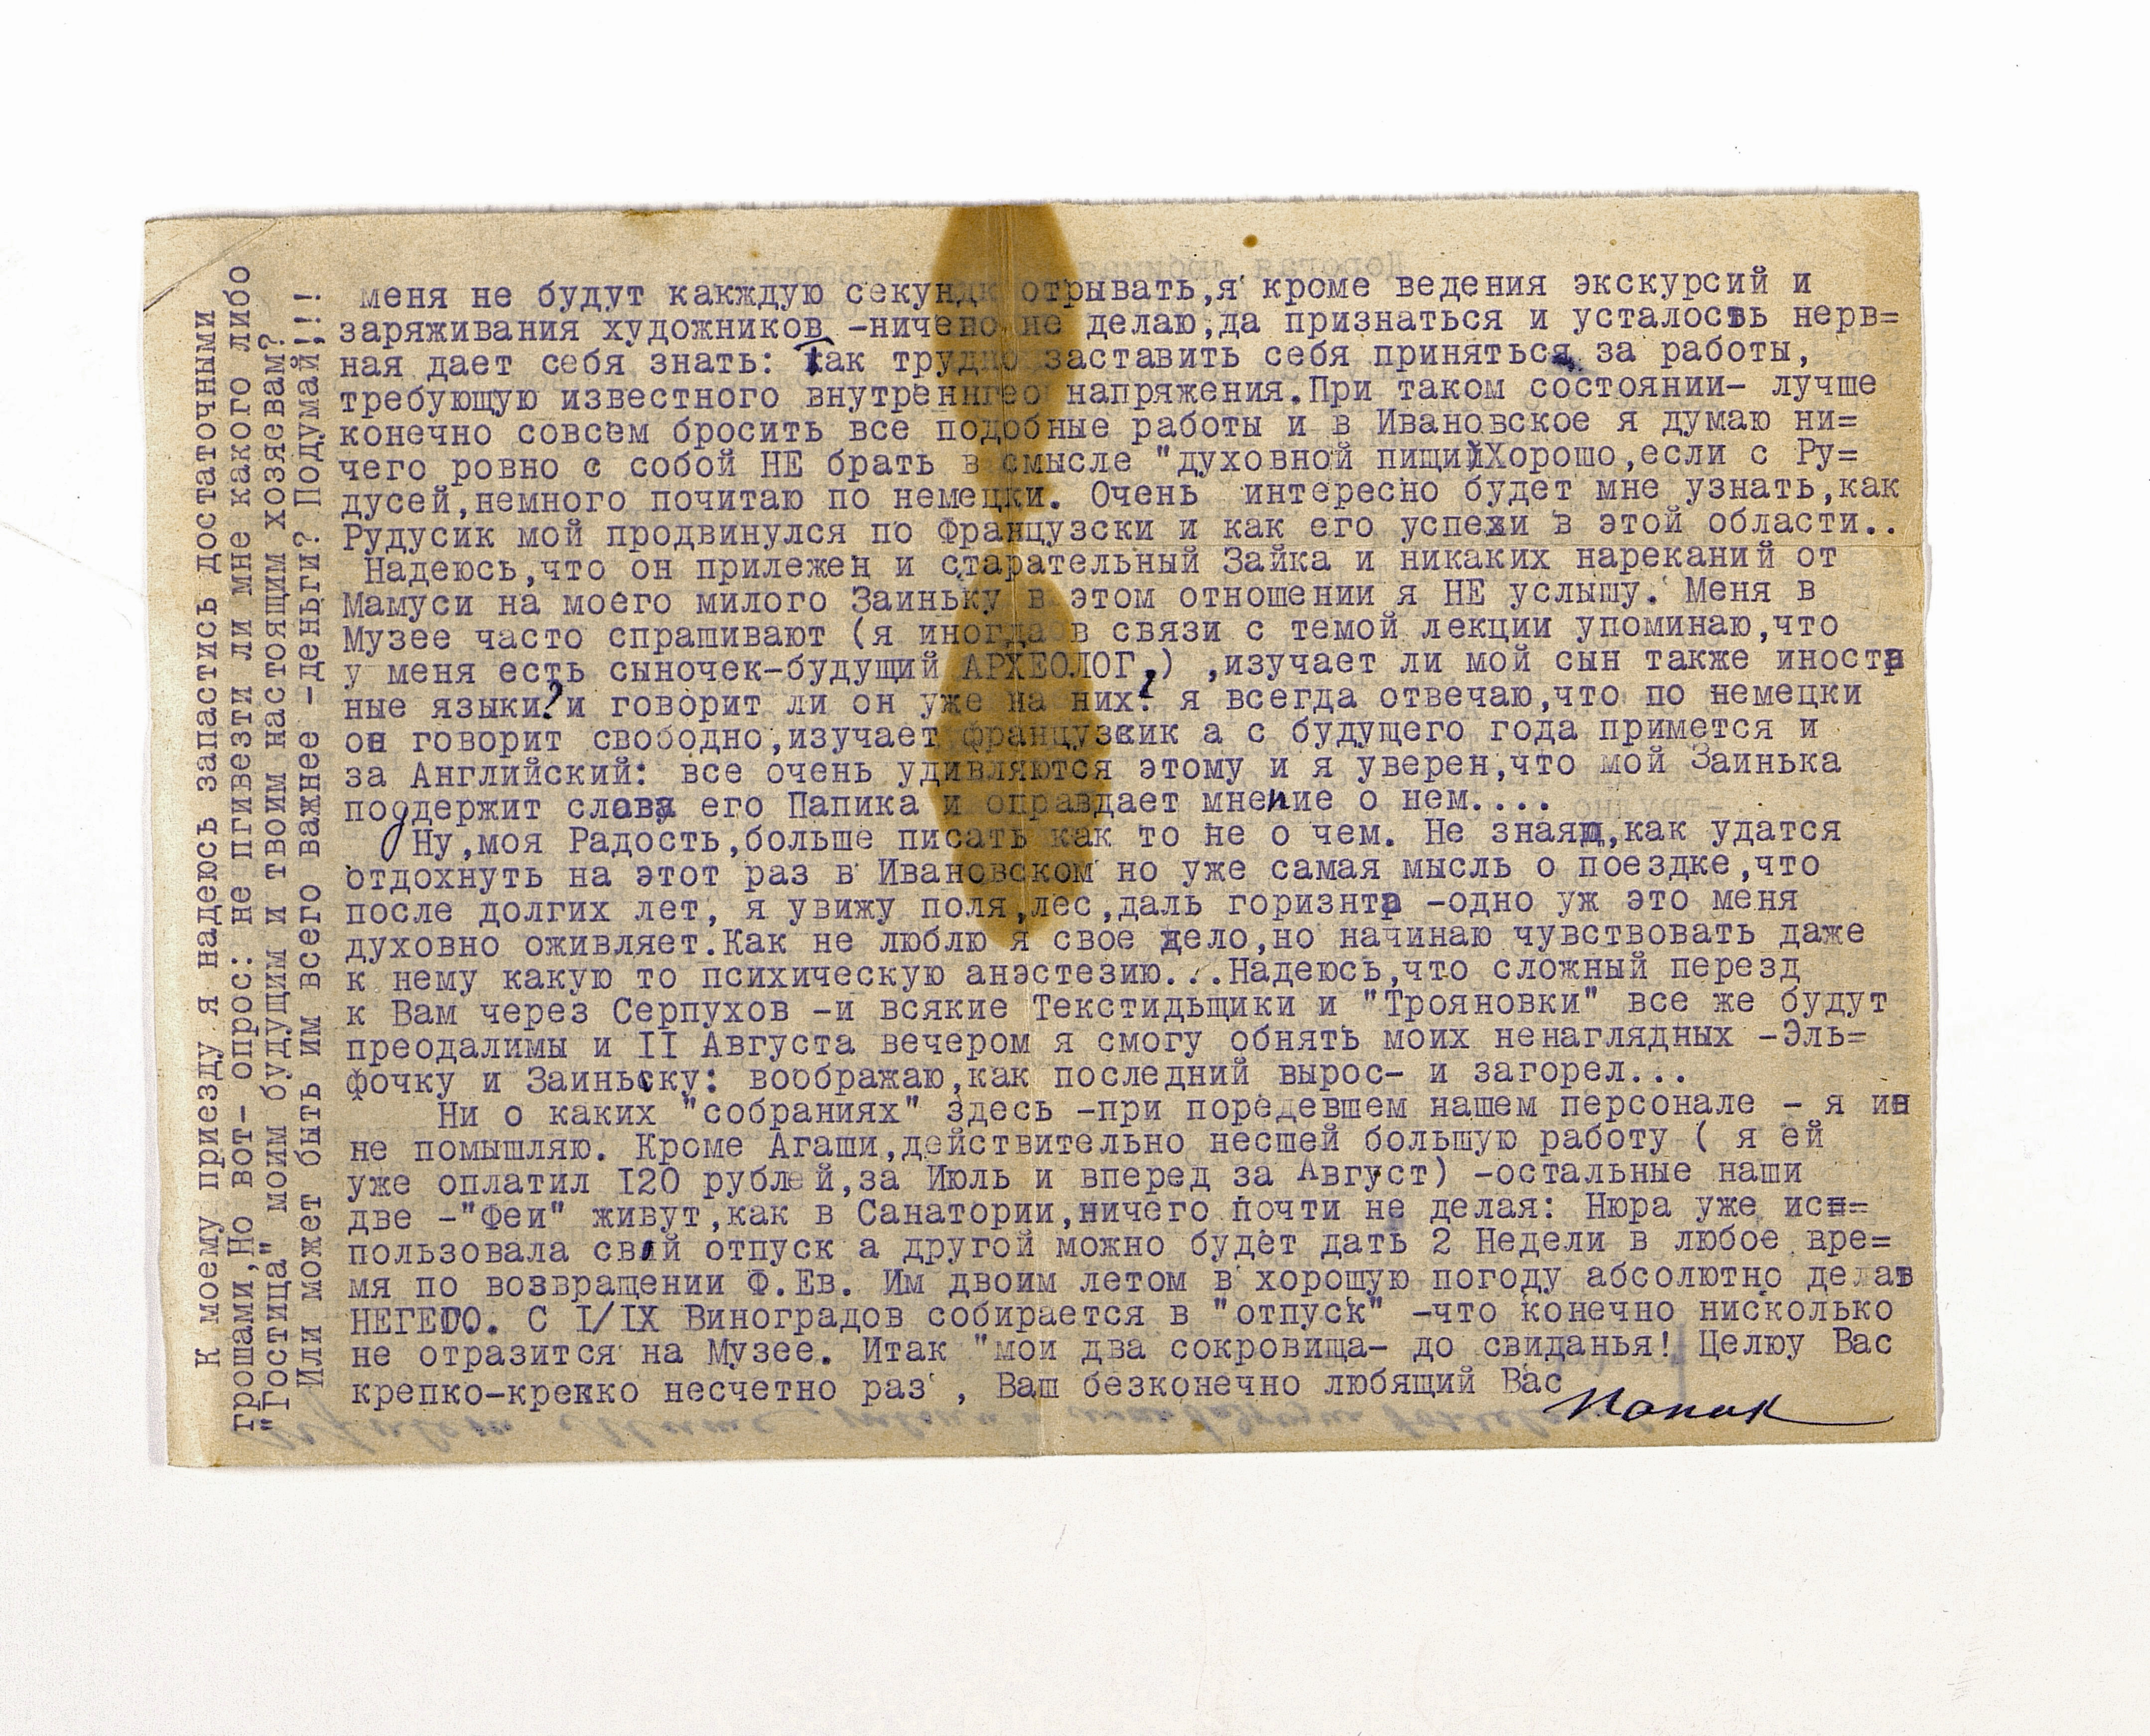 меня не будут какждую секунду отрывать,я кроме ведения экскурсий и
заряживания художников -ничего не делаю,да признаться и усталость нерв=
ная дает себя знать: Так трудно заставить себя приняться за работы,
требующую известного внутреннгео напряжения.При таком состоянии- лучше
конечно совсем бросить все подобные работы и в Ивановское я думаю ни=
чего ровно с собой НЕ брать в смысле "духовной пищи)Хорошо,если с Ру=
дусей,немного почитаю по немецки. Очень интересно будет мне узнать,как
Рудусик мой продвинулся по Французски и как его успехи в этой области..
Надеюсь,что он прилежен и старательный Зайка и никаких нареканий от
Мамуси на моего милого Заиньку в этом отношении я НЕ услышу. Меня в
Музее часто спрашивают (я иногда в связи с темой лекции упоминаю,что
у меня есть сыночек-будущий АРХЕОЛОГ,) ,изучает ли мой сын также иностр
ные языки?и говорит ли он уже на них? я всегда отвечаю,что по немецки
он говорит свободно,изучает французкик а с будущего года примется и
за Английский: все очень удивляются этому и я уверен,что мой Заинька
поддержит слова его Папика и оправдает мнение о нем....
Ну,моя Радость,больше писать как то не о чем. Не знаю,как удатся
отдохнуть на этот раз в Ивановском но уже самая мысль о поездке,что
после долгих лет, я увижу поля,лес,даль горизнта -одно уж это меня
духовно оживляет.Как не люблю я свое дело,но начинаю чувствовать даже
к нему какую то психическую анэстезию...Надеюсь,что сложный перезд
к Вам через Серпухов -и всякие Текстидьщики и "Трояновки" все же будут
преодалимы и II Августа вечером я смогу обнять моих ненаглядных -Эль=
фочку и Заиньску: воображаю,как последний вырос- и загорел...
Ни о каких "собраниях" здесь -при поредевшем нашем персонале - я ин
не помышляю. Кроме Агаши,действительно несшей большую работу ( я ей
уже оплатил I20 рублей,за Июль и вперед за Август) -остальные наши
две -"Феи" живут,как в Санатории,ничего почти не делая: Нюра уже ис=
пользовала свой отпуск а другой можно будет дать 2 Недели в любое вре=
мя по возвращении Ф.Ев. Им двоим летом в хорошую погоду абсолютно делат
НЕГЕГО. С I/IX Виноградов собирается в "отпуск" -что конечно нисколько
не отразится на Музее. Итак "мои два сокровища- до свиданья! Целюу Вас
крепко-крепко несчетно раз , Ваш безконечно любящий Вас
Папик
К моему приезду я надеюсь запастись достаточными
грошами,Но вот- опрос: не пгивезти ли мне какого либо
"Гостица" моим будущим и твоим настоящим хозяевам?
Или может быть им всего важнее -деньги? Подумай,!!